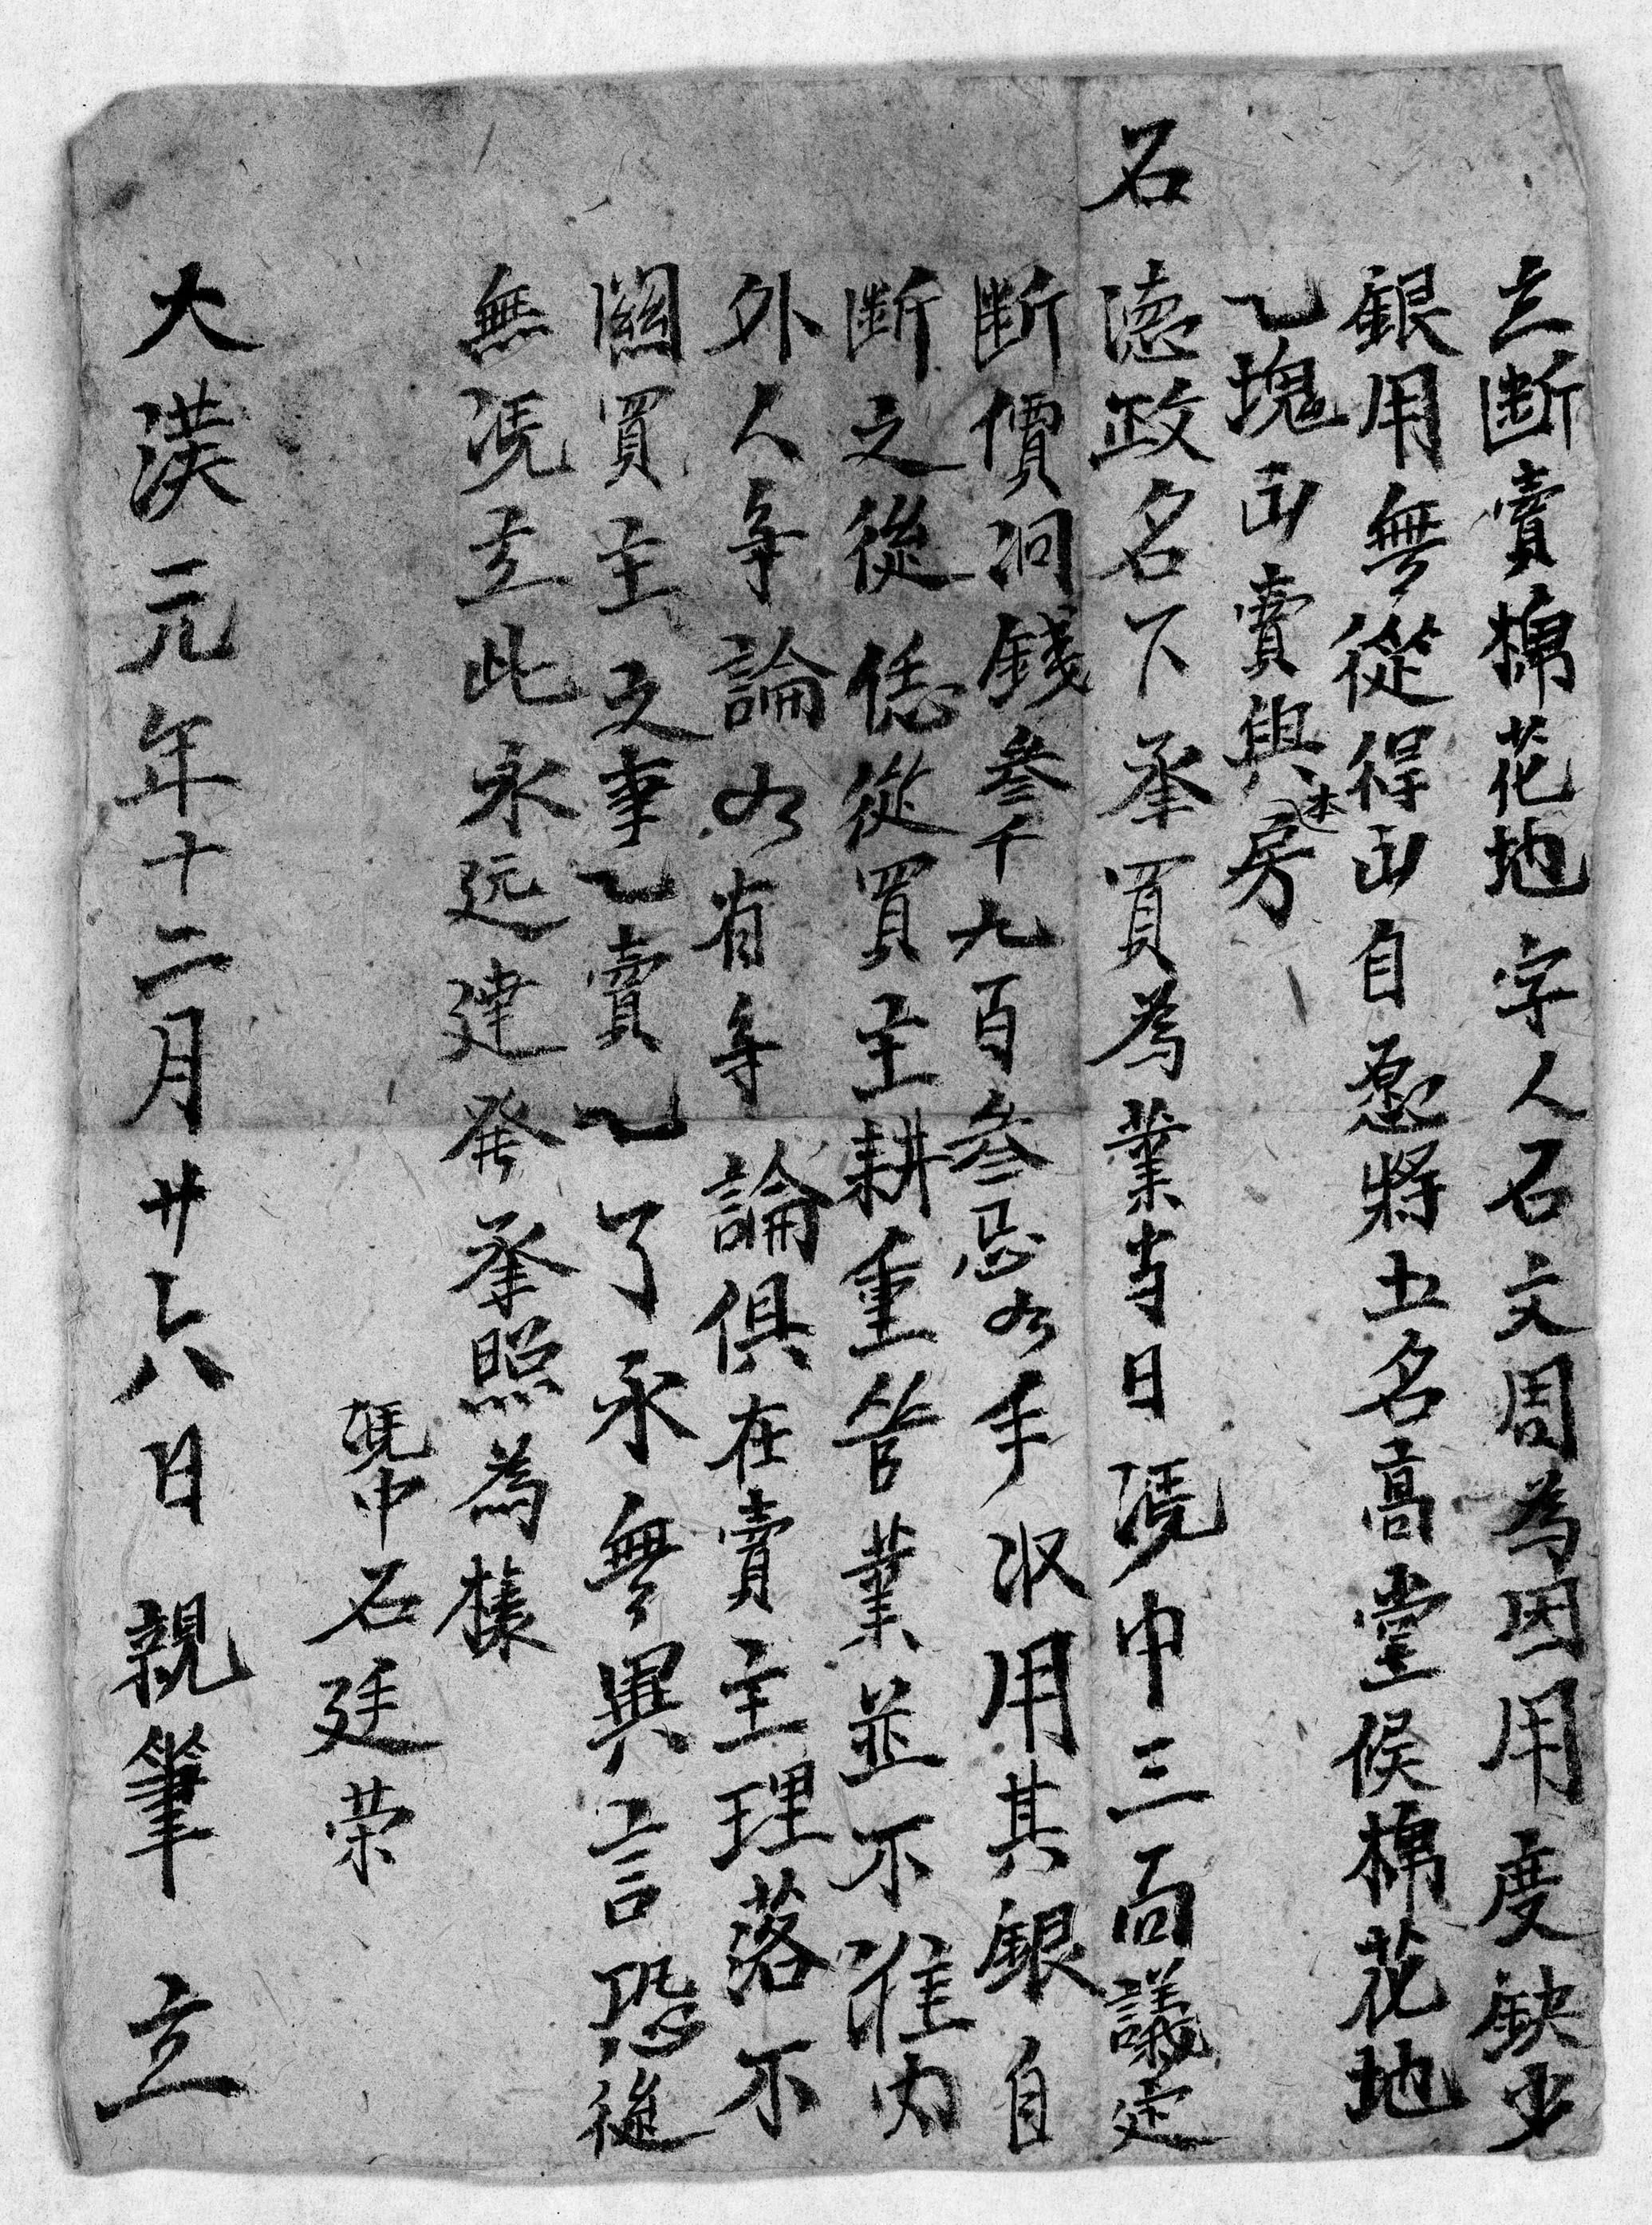 立断賣棉花地字人石文周為因用度缺少
銀用無從得出自愿將土名高堂候棉花地
乙塊出賣與本房
石德政名下承買為業当日凴中三面議定
断價洞錢叁千九百叁忌如手収用其銀自
断之後恁從買主耕重管業並不准内
外人争論如有争論俱在賣主理落不
関買主之事乙賣乙了永無異言恐後
無凴立此永远建發承照為樣
凴中石廷荣
大漢元年十二月廿六日親筆立